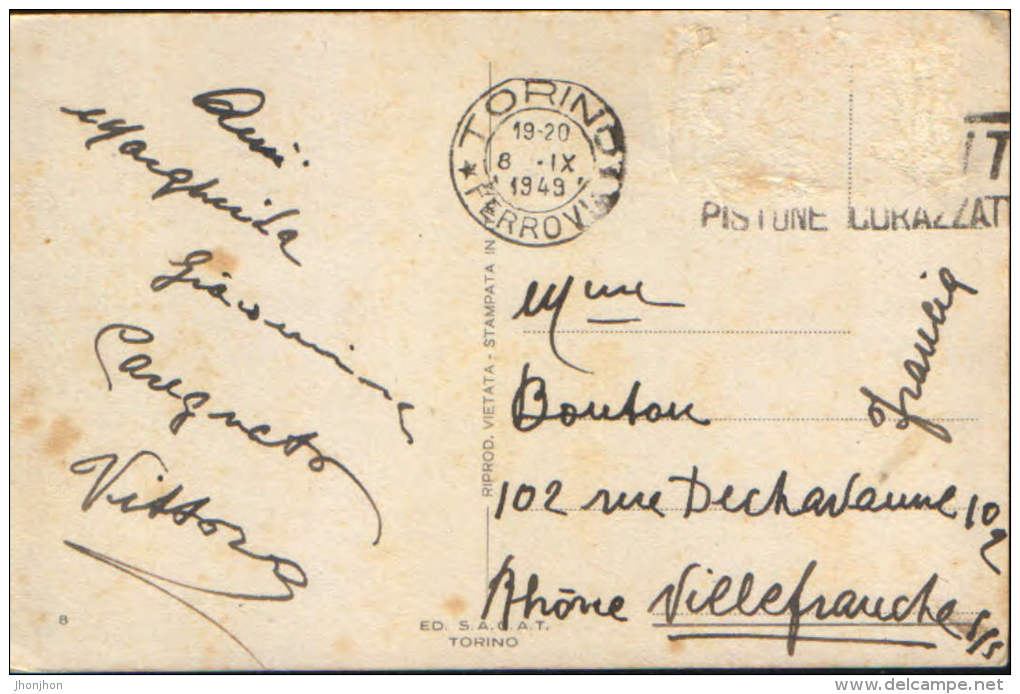 Margherita
Giacomina
Vittoria
TORINO
19-20
8 · IX
1949
FERROVIA
PISTONE CORAZZAT
RIPROD. VIETATA - STAMPATA IN
Mme
Bouton
Francia
102 rue Dechavanne 102
Rhône Villefranche s/S
8
ED. S.A.C.A.T.
TORINO
jhonjhon
www.delcampe.net